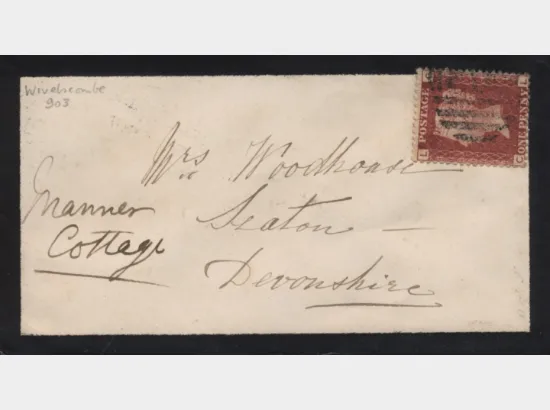 Wivelscombe
903
POSTAGE
ONE PENNY
L C
Mrs Woodhouse
Manner
Cottage
Seaton
Devonshire